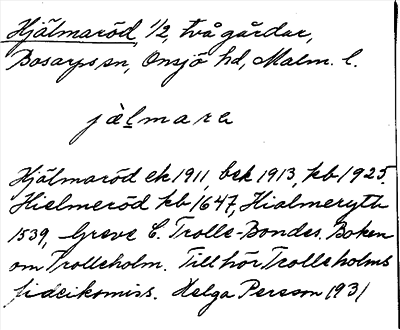 Hjälmaröd, 1/2, två gårdar,
Bosarps sn, Onsjö hd, Malm. l.
jàlmare
Hjälmaröd ek 1911, bsk 1913, kb 1925.
Hielmeröd kb 1647, Hialmerytt
1539, Greve C. Trolle-Bondes. Boken
om Trolleholm. Tillhör Trolleholms
fideikomiss. Helga Persson 1931